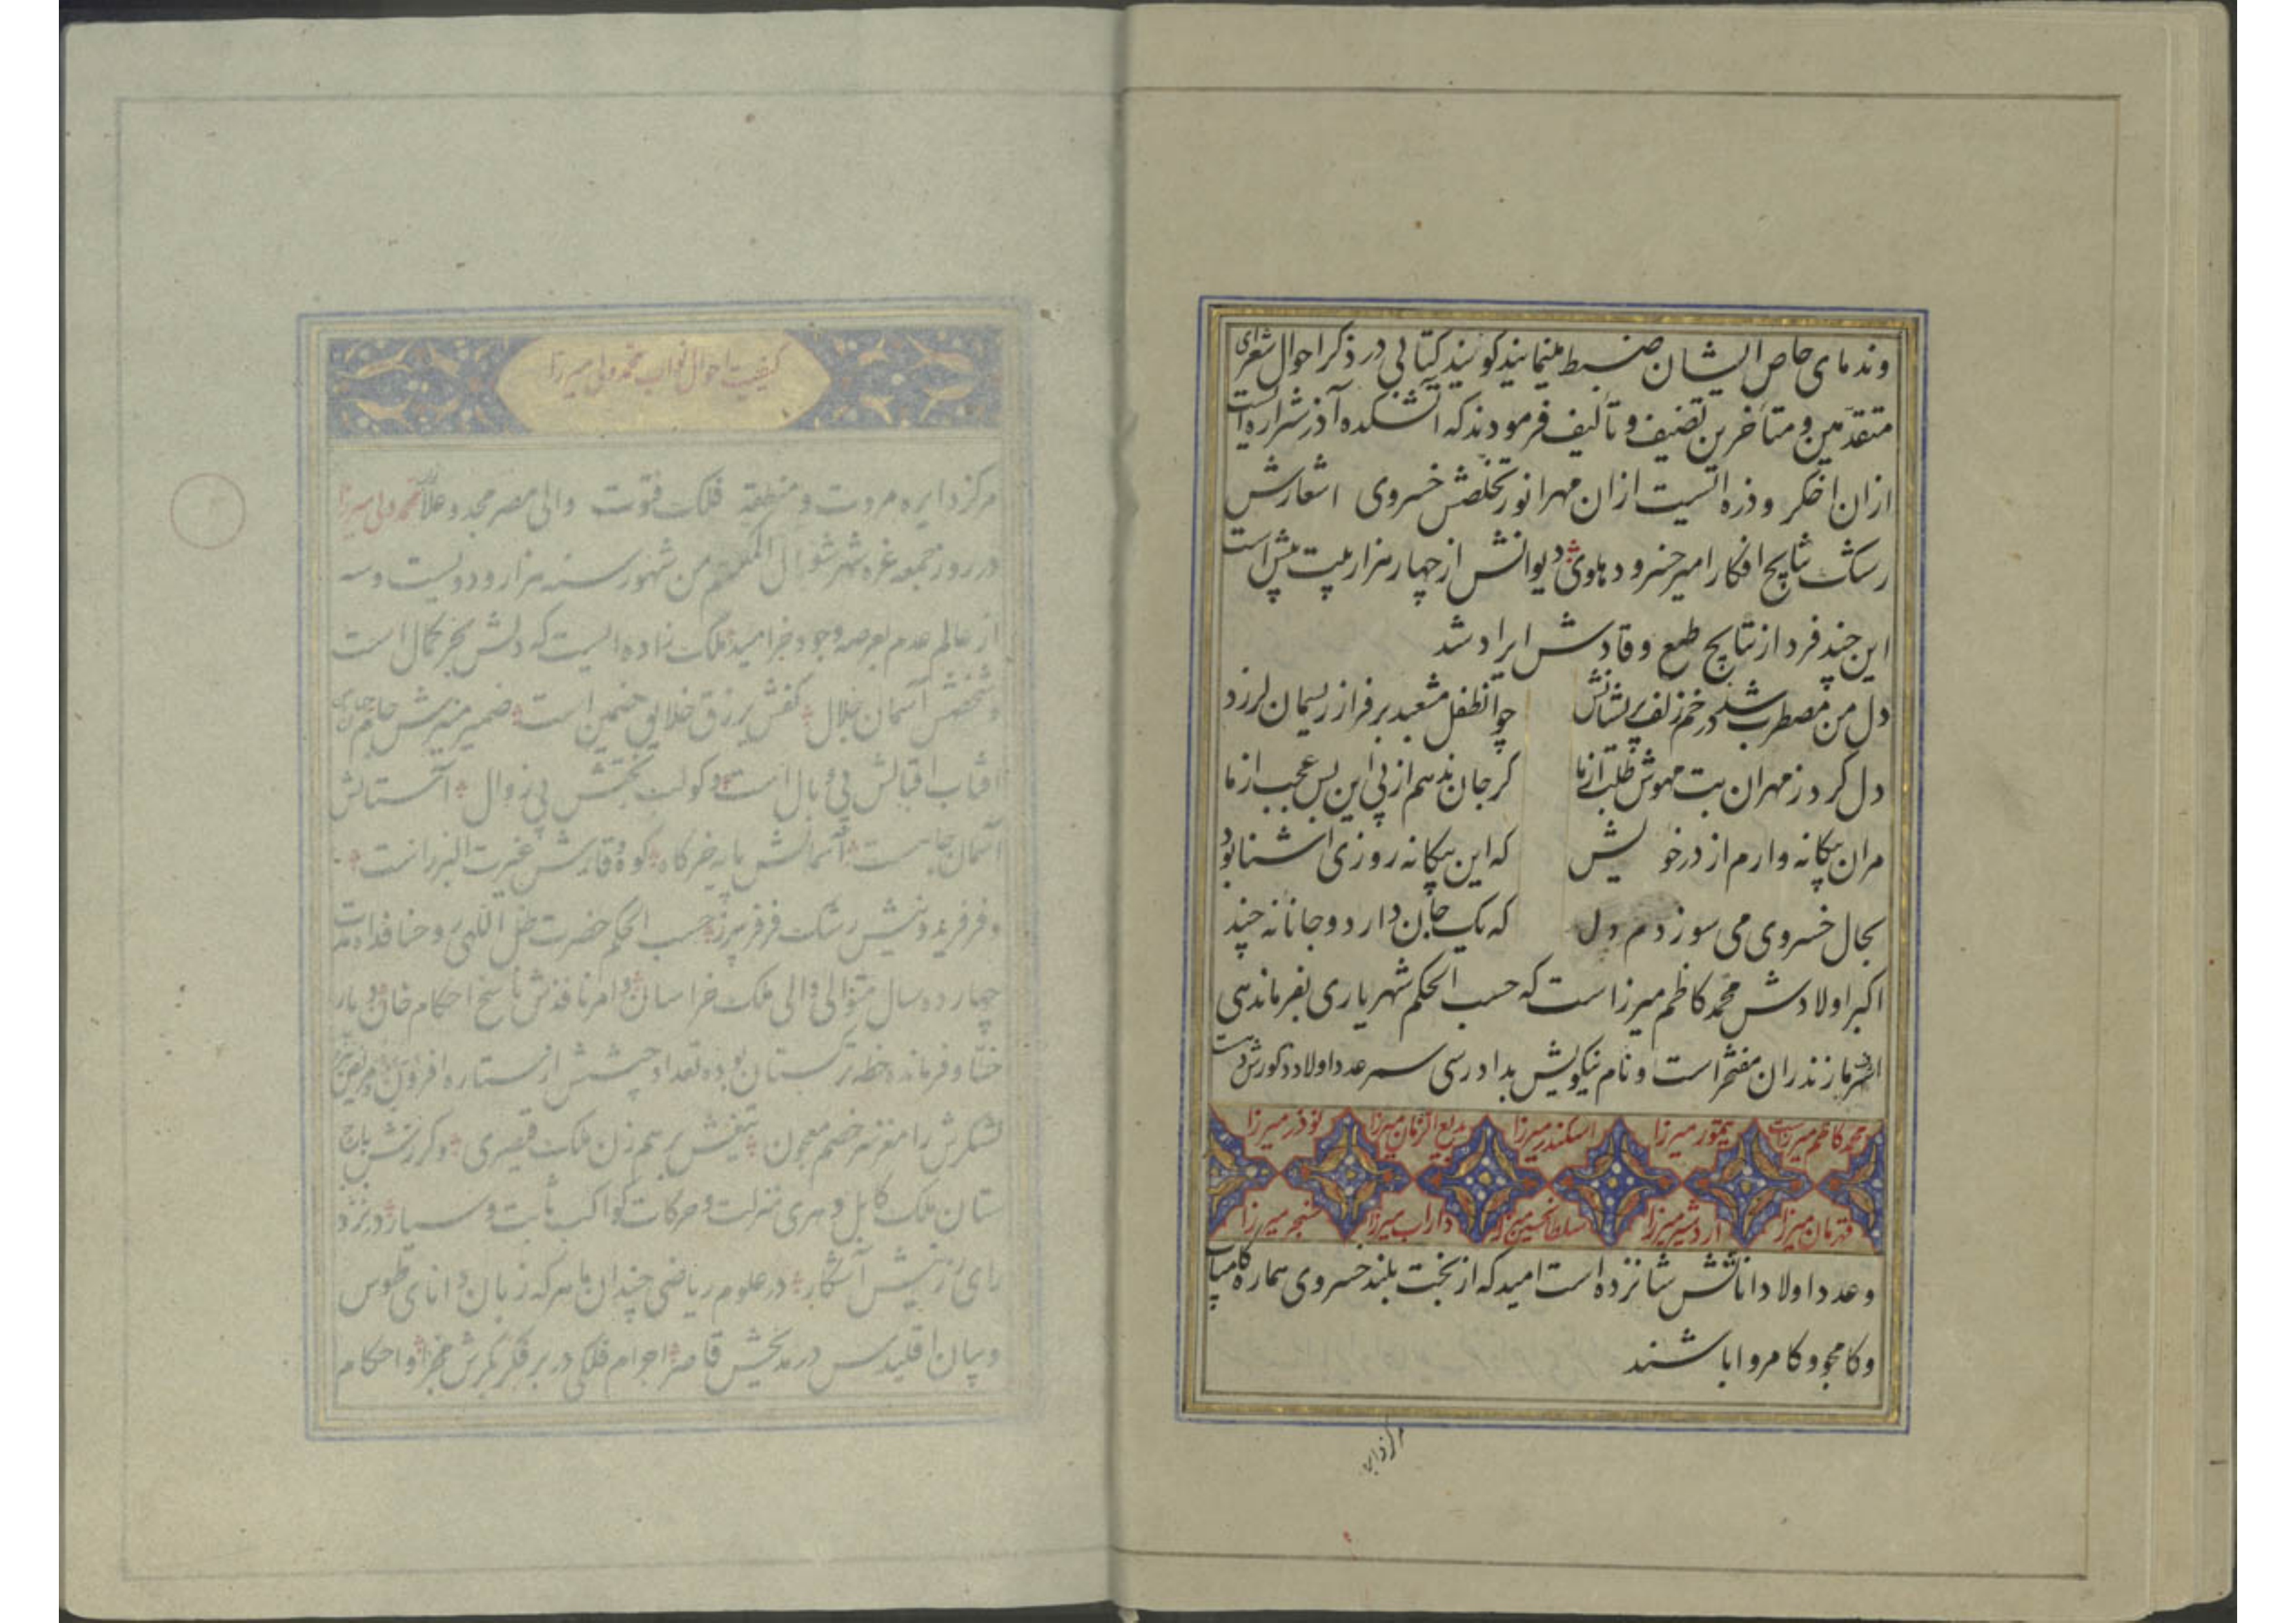 وندمای خاص ایشان ضبط مینمایند گویند کتابی در ذکر احوال شعرای
متقدّمین و متأخرین تصنیف و تألیف فرمودند که آتشکده آذر شراره‌ایست
ازان اخکر و ذره ایست ازان مهر انور تخلصش خسروی اشعارش
رشک نتایج افکار امیر خسرو دهلوی دیوانش از چهار هزار بیت بیش است
این چند فرد از نتایج طبع وقادش ایراد شد
دل من مضطرب شد در خم زلف پریشانش
چو انطفل مشعبد بر فراز ریسمان لرزد
دل کرد ز مهر ان بت مهوش طلب از ما
کر جان ندهم از پی این بس عجب از ما
مران بیکانه وارم از در خویش
که این بیکانه روزی اشنا بود
بحال خسروی می سوزدم دل
که یک جان دارد و جانانه چند
اکبر اولادش محمد کاظم میرزاست که حسب الحکم شهریاری بفرماندهی
مازندران مفتخر است و نام نیکویش بدادرسی سمر عدد اولاد ذکورش
محمد کاظم میرزا تیمور میرزا اسکندر میرزا بدیع الزمان میرزا نوذر میرزا
قهرمان میرزا اردشیر میرزا سلطانحسین میرزا داراب میرزا سنجر میرزا
و عدد اولاد اناثش شانزده است امید که از بخت بلند خسروی هماره کامیاب
و کامجو و کامروا باشند
مرکز دایره
کیفیت احوال نواب محمد ولی میرزا
مرکز دایره مروت و منطقه فلک فتوت والی مصر مجد و علا محمد ولی میرزا
در روز جمعه غره شهر شوال المکرم من شهور سنه هزار و دویست و سه
از عالم عدم بعرصه وجود خرامید ملک زاده ایست که دلش بحر کمال است
و شخصش آسمان جلال کفش برزق خلایق ضمین است ضمیر منیرش جام
افتاب اقبالش بی وبال است و کوکب بختش بی زوال آستانش
آسمان جاست آسمانش پایه خرکاه کوه وقارش غیرت البرز است
و فر فریدونیش رشک فر فریبرز حسب الحکم حضرت ظل اللهی روحنا فداه مدت
چهارده سال متوالی والی ملک خراسان و امر نافذش ناسخ احکام خان و یار
ختا و فرمانده خطه ترکستان بوده تعداد جیشش از ستاره افزون
لشکرش را مغز سر خصم معجون تیغش بر هم زن ملک قیصری و کرزش باج
ستان ملک کابل و هری منزلت و حرکات کواکب ثابت و سیار در نزد
رای رزینش آشکار در علوم ریاضی چندان ماهر که زبان دانای طوس
و بیان اقلیدس در مدیحش قاصر اجرام فلکی در بر فکر بکرش مجرا و احکام